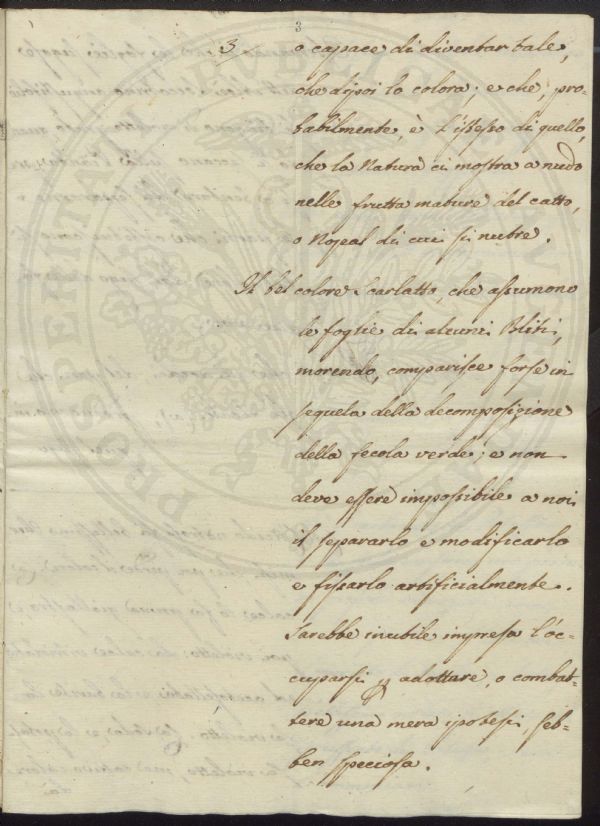 3
3/ o capace di diventar tale,
che dipoi lo colora; e che, pro=
babilmente, è l'istesso di quello,
che la Natura ci mostra a nudo
nelle frutta mature del catto,
o Nopal di cui si nutre.
Il bel colore Scarlatto, che assumono
le foglie di alcuni Bliti,
morendo, comparisce forse in
sequela della decomposizione
della fecola verde; e non
deve essere impossibile a noi
il separarlo e modificarlo
e fissarlo artificialmente.
Sarebbe inutile impresa l'oc=
cuparsi adottare, o combat=
tere una mera ipotesi, seb=
ben speciosa.